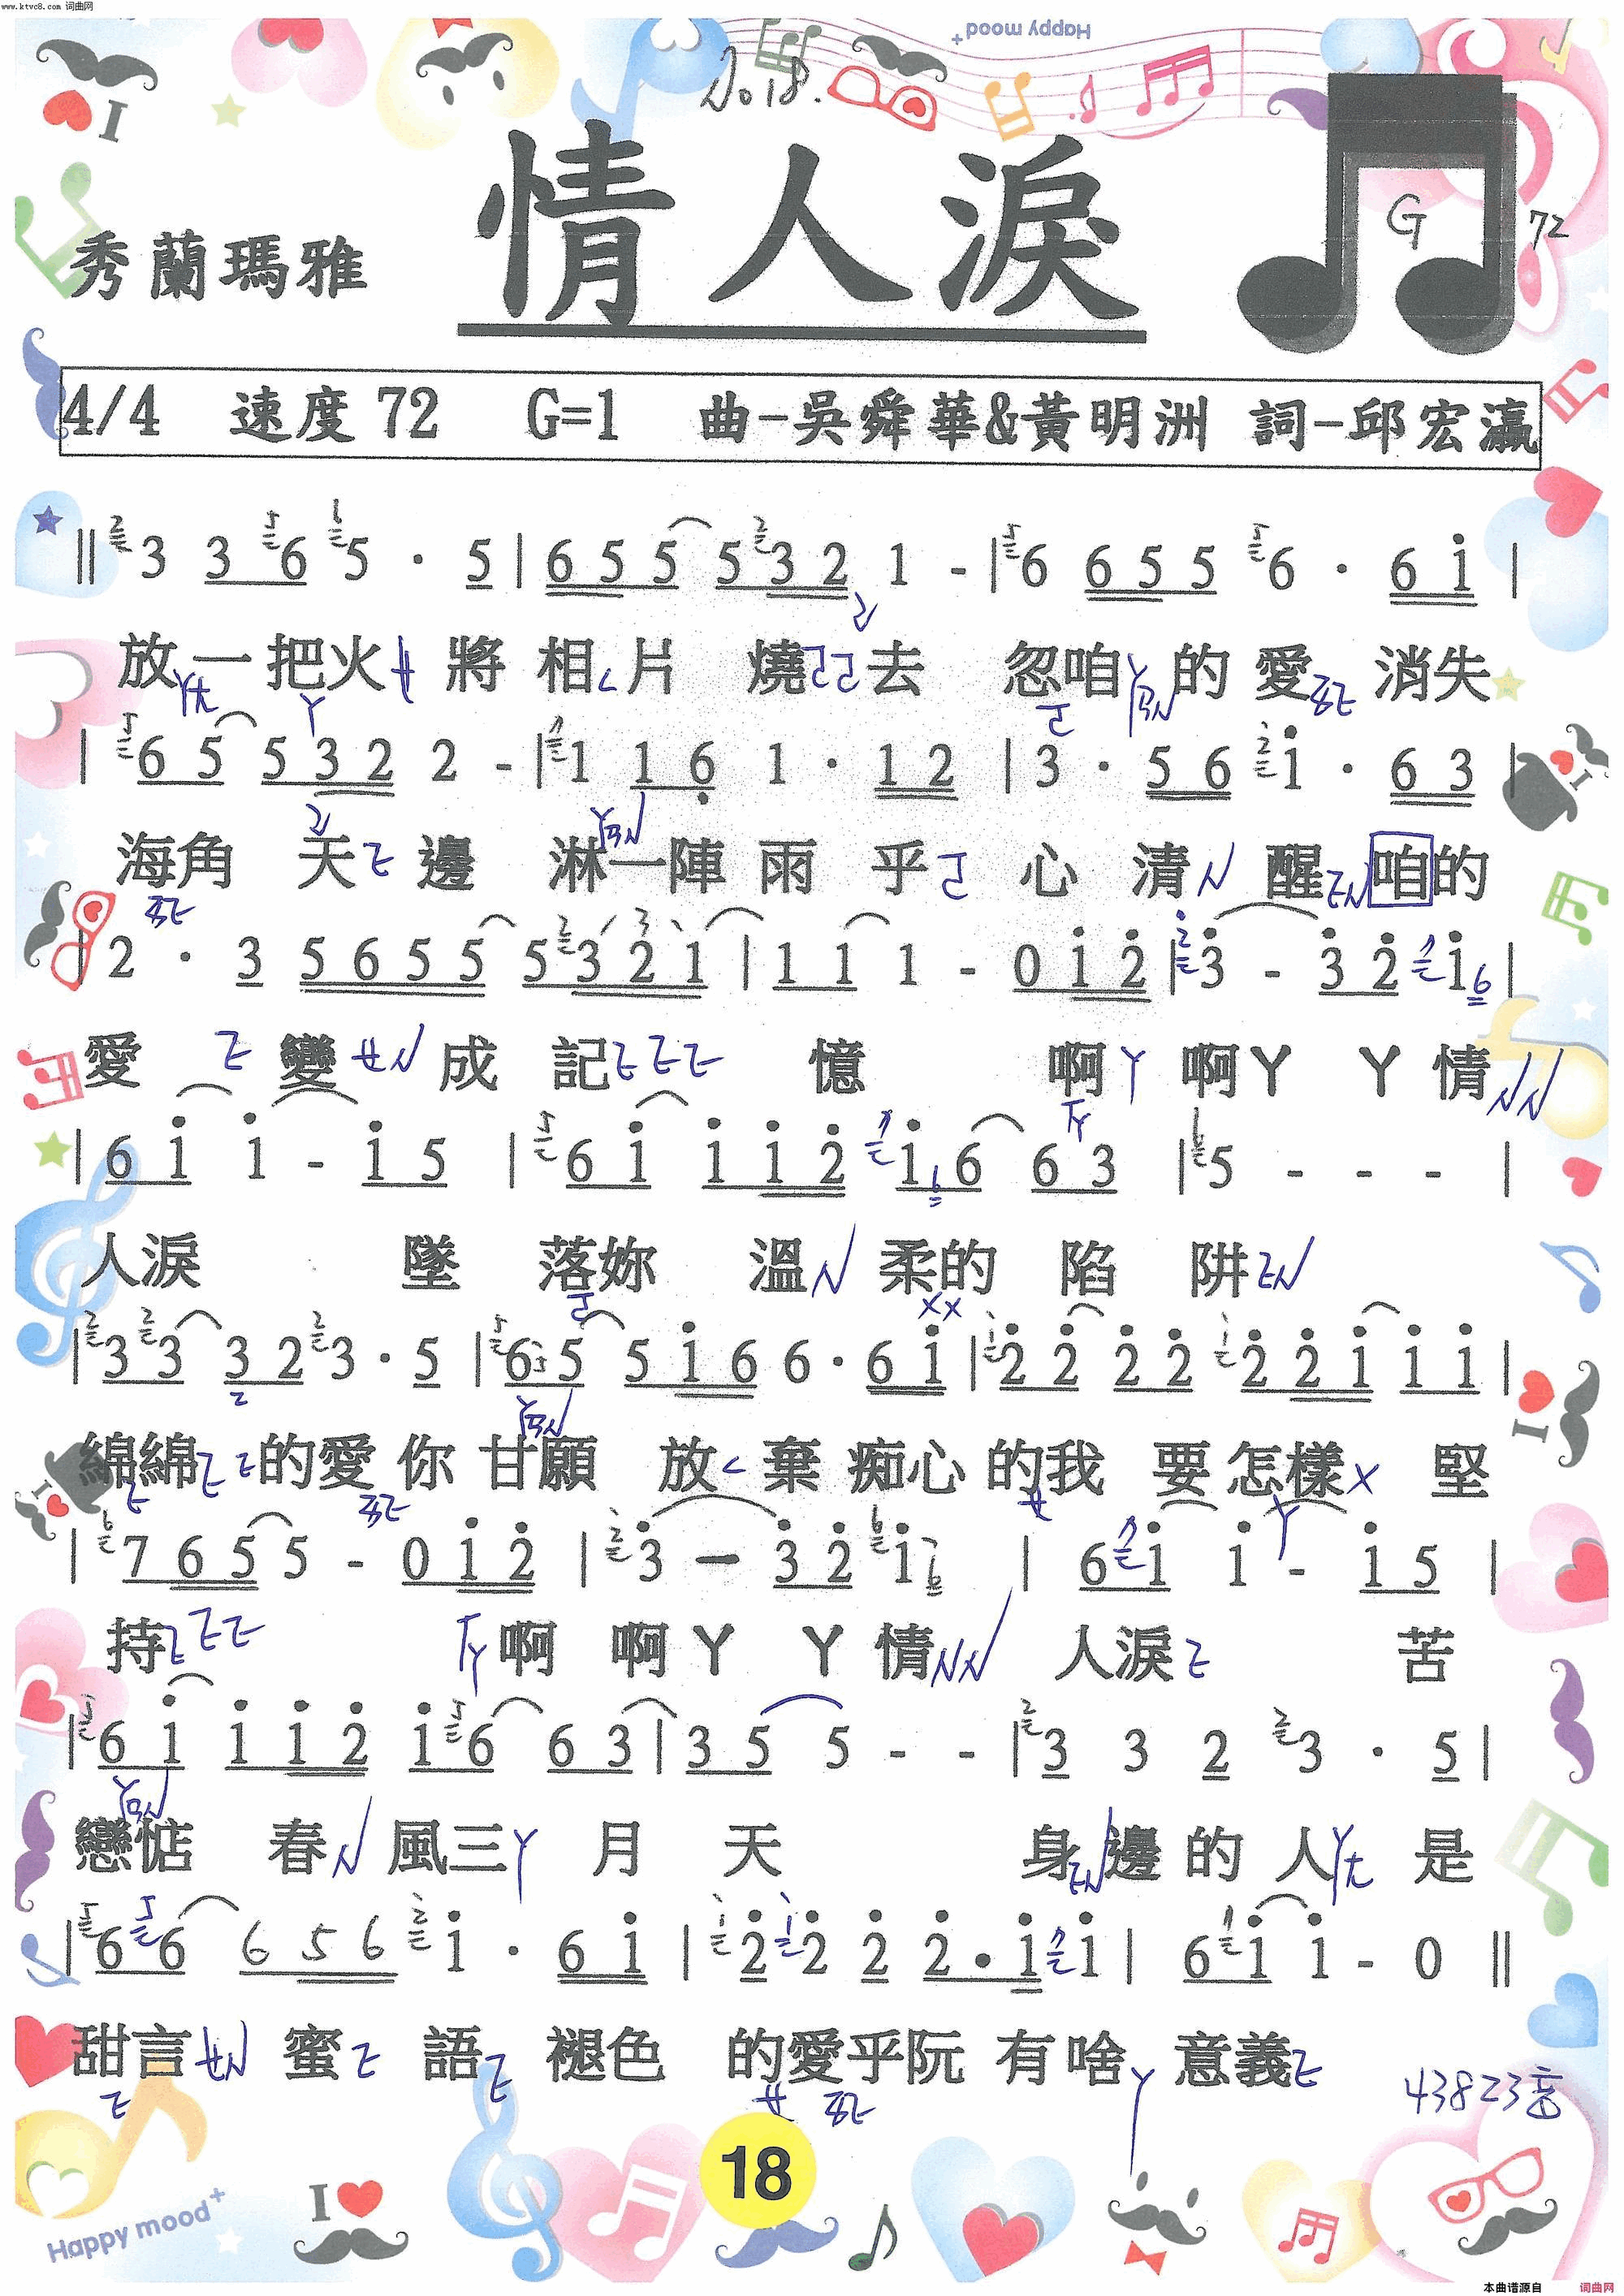 www.ktvc8.com 词曲网
Happy mood+
No 18.
情人淚
秀蘭瑪雅
G
72
4/4 速度 72 G=1 曲-吳舜華&黃明洲 詞-邱宏瀛
‖ 3 3 6 5 · 5 | 6 5 5 5 3 2 1 - | 6 6 5 5 6 · 6 i |
放一把火 將 相片 燒 去 忽咱 的 愛 消失
| 6 5 5 3 2 2 - | 1 1 6 1 · 1 2 | 3 · 5 6 i · 6 3 |
海角 天 邊 淋一陣 雨 乎 心 清 醒 咱的
2 · 3 5 6 5 5 5 3 2 1 | 1 1 1 - 0 i 2 | 3 - 3 2 i 6 |
愛 變 成 記 憶 啊 啊ㄚ ㄚ 情
| 6 i i - i 5 | 6 i i i 2 i 6 6 3 | 5 - - - |
人淚 墜 落妳 溫 柔的 陷 阱
| 3 3 3 2 3 · 5 | 6 5 5 i 6 6 · 6 i | 2 2 2 2 2 2 i i i |
綿綿 的愛 你 甘願 放 棄 痴心 的我 要 怎樣 堅
| 7 6 5 5 - 0 i 2 | 3 - 3 2 i 6 | 6 i i - i 5 |
持 啊 啊 ㄚ ㄚ 情 人淚 苦
| 6 i i i 2 i 6 6 3 | 3 5 5 - - | 3 3 2 3 · 5 |
戀惦 春 風三 月 天 身 邊 的 人 是
| 6 6 6 5 6 i · 6 i | 2 2 2 2 · i i | 6 i i - 0 ‖
甜言 蜜 語 褪色 的愛乎阮 有啥 意義
43823音
18
Happy mood+
I
本曲谱源自 词曲网